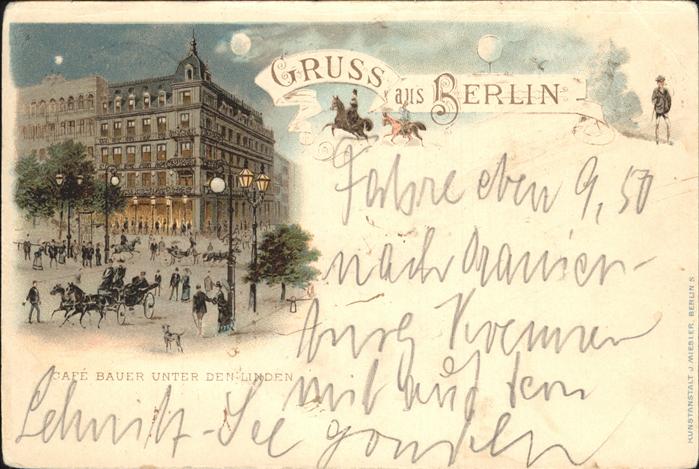 GRUSS aus BERLIN
Fahre eben 9,50
nach Oranien-
burg Kremmen
mit auf den
CAFÉ BAUER UNTER DEN LINDEN
See
KUNSTANSTALT J. MIESLER, BERLIN S.